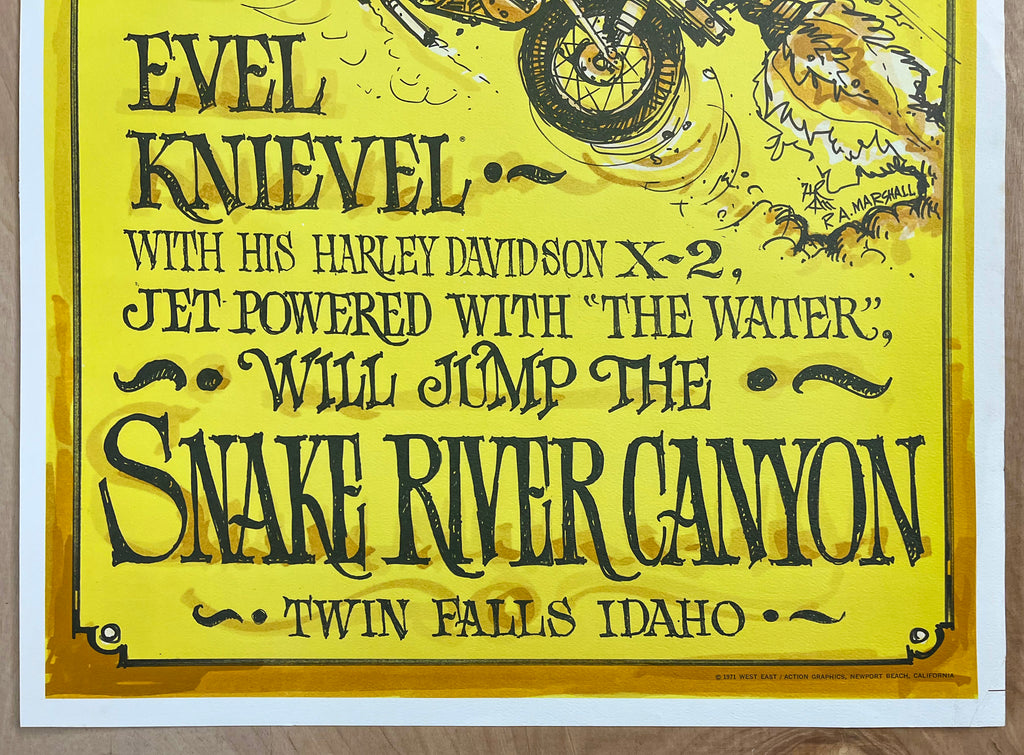 EVEL
KNIEVEL
R.A. MARSHALL
WITH HIS HARLEY DAVIDSON X-2,
JET POWERED WITH "THE WATER",
WILL JUMP THE
SNAKE RIVER CANYON
TWIN FALLS IDAHO
© 1971 WEST EAST / ACTION GRAPHICS, NEWPORT BEACH, CALIFORNIA